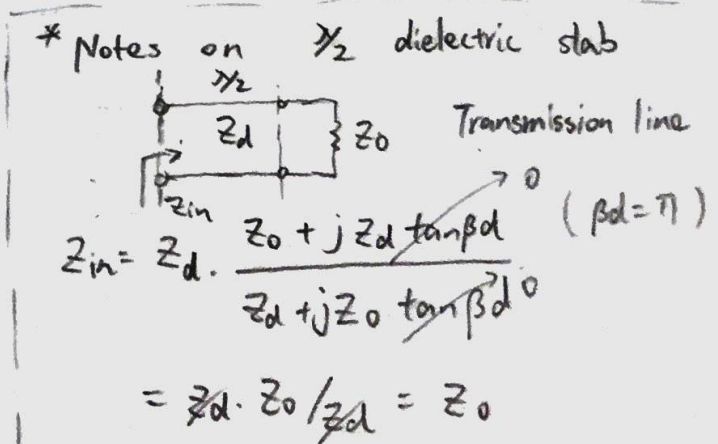 * Notes on λ/2 dielectric slab
λ/2
Zd
Z0
Transmission line
Zin
0
(βd=π)
Zin = Zd · (Z0 + j Zd tanβd) / (Zd + j Z0 tanβd)
0
= Zd · Z0 / Zd = Z0